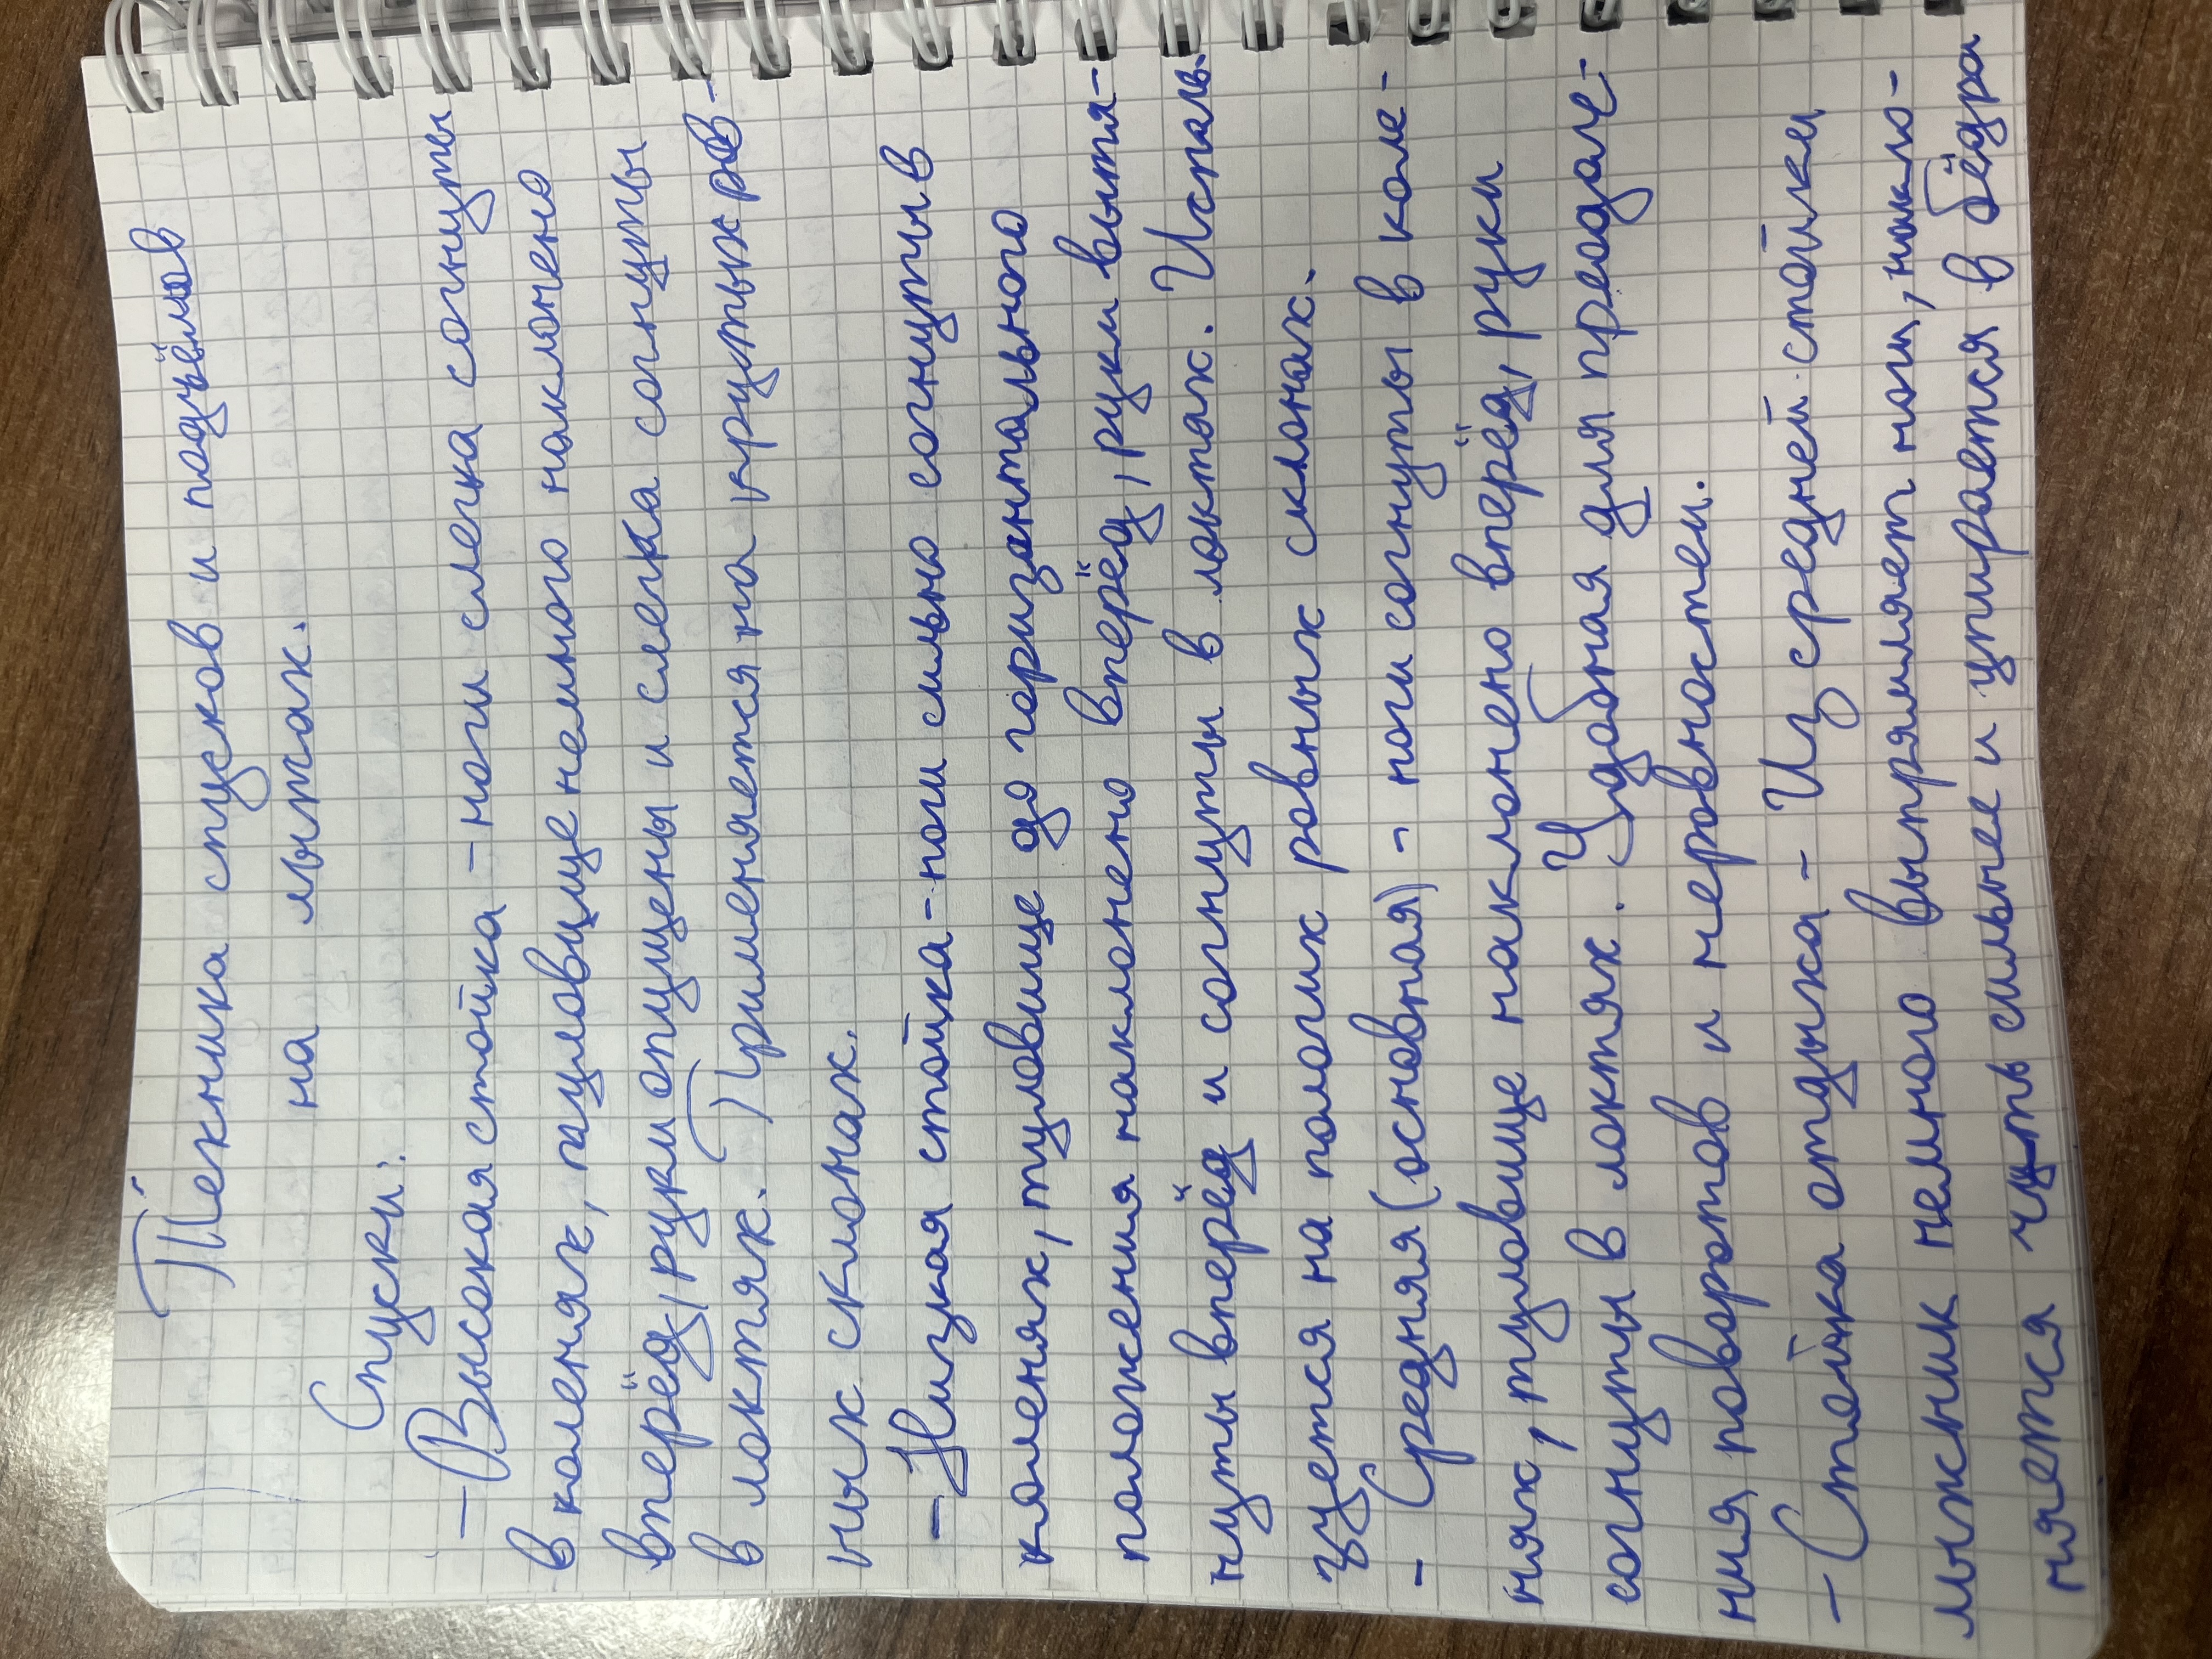 Техника спусков и подъёмов
на лыжах.
Спуски:
- Высокая стойка - ноги слегка согнуты
в коленях, туловище немного наклонено
вперёд, руки опущены и слегка согнуты
в локтях. Применяется на крутых ров-
ных склонах.
- Низкая стойка - ноги сильно согнуты в
коленях, туловище до горизонтального
положения наклонено вперёд, руки вытя-
нуты вперёд и согнуты в локтях. Исполь-
зуется на пологих ровных склонах.
- Средняя (основная) - ноги согнуты в коле-
нях, туловище наклонено вперёд, руки
согнуты в локтях. Удобная для преодоле-
ния поворотов и неровностей.
- Стойка отдыха - Из средней стойки
лыжник немного выпрямляет ноги, накло-
няется чуть сильнее и упирается в бёдра